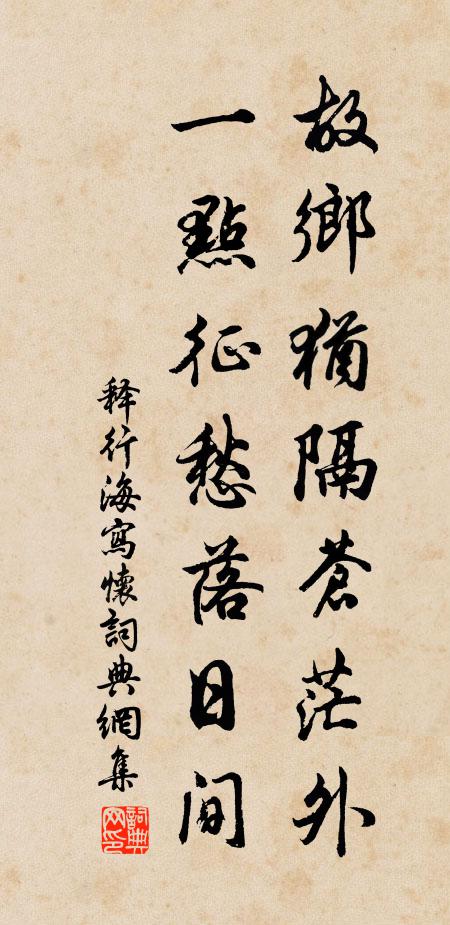 故鄉猶隔蒼茫外
一點征愁落日間
释行海寫懷詞典網集
詞典网印